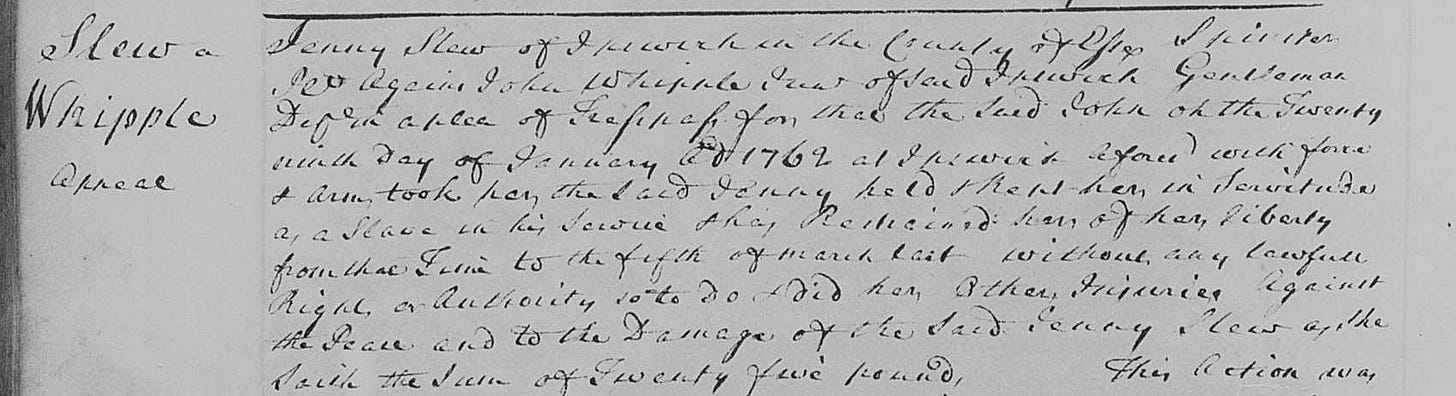 Slew a
Whipple
Appeal
Jenny Slew of Ipswich in the County of Essex Spinster
Against John Whipple Junr of said Ipswich Gentleman
Deft in a plea of Trespass for that the said John on the Twenty
ninth Day of January AD 1762 at Ipswich aforesd with force
& arms took her the said Jenny held & kept her in Servitude
as a Slave in his Service & has Restrained her of her liberty
from that Time to the fifth of march last without any lawfull
Right or Authority so to do & did her other Injuries Against
the Peace and to the Damage of the said Jenny Slew as she
saith the Sum of Twenty five pounds This Action was